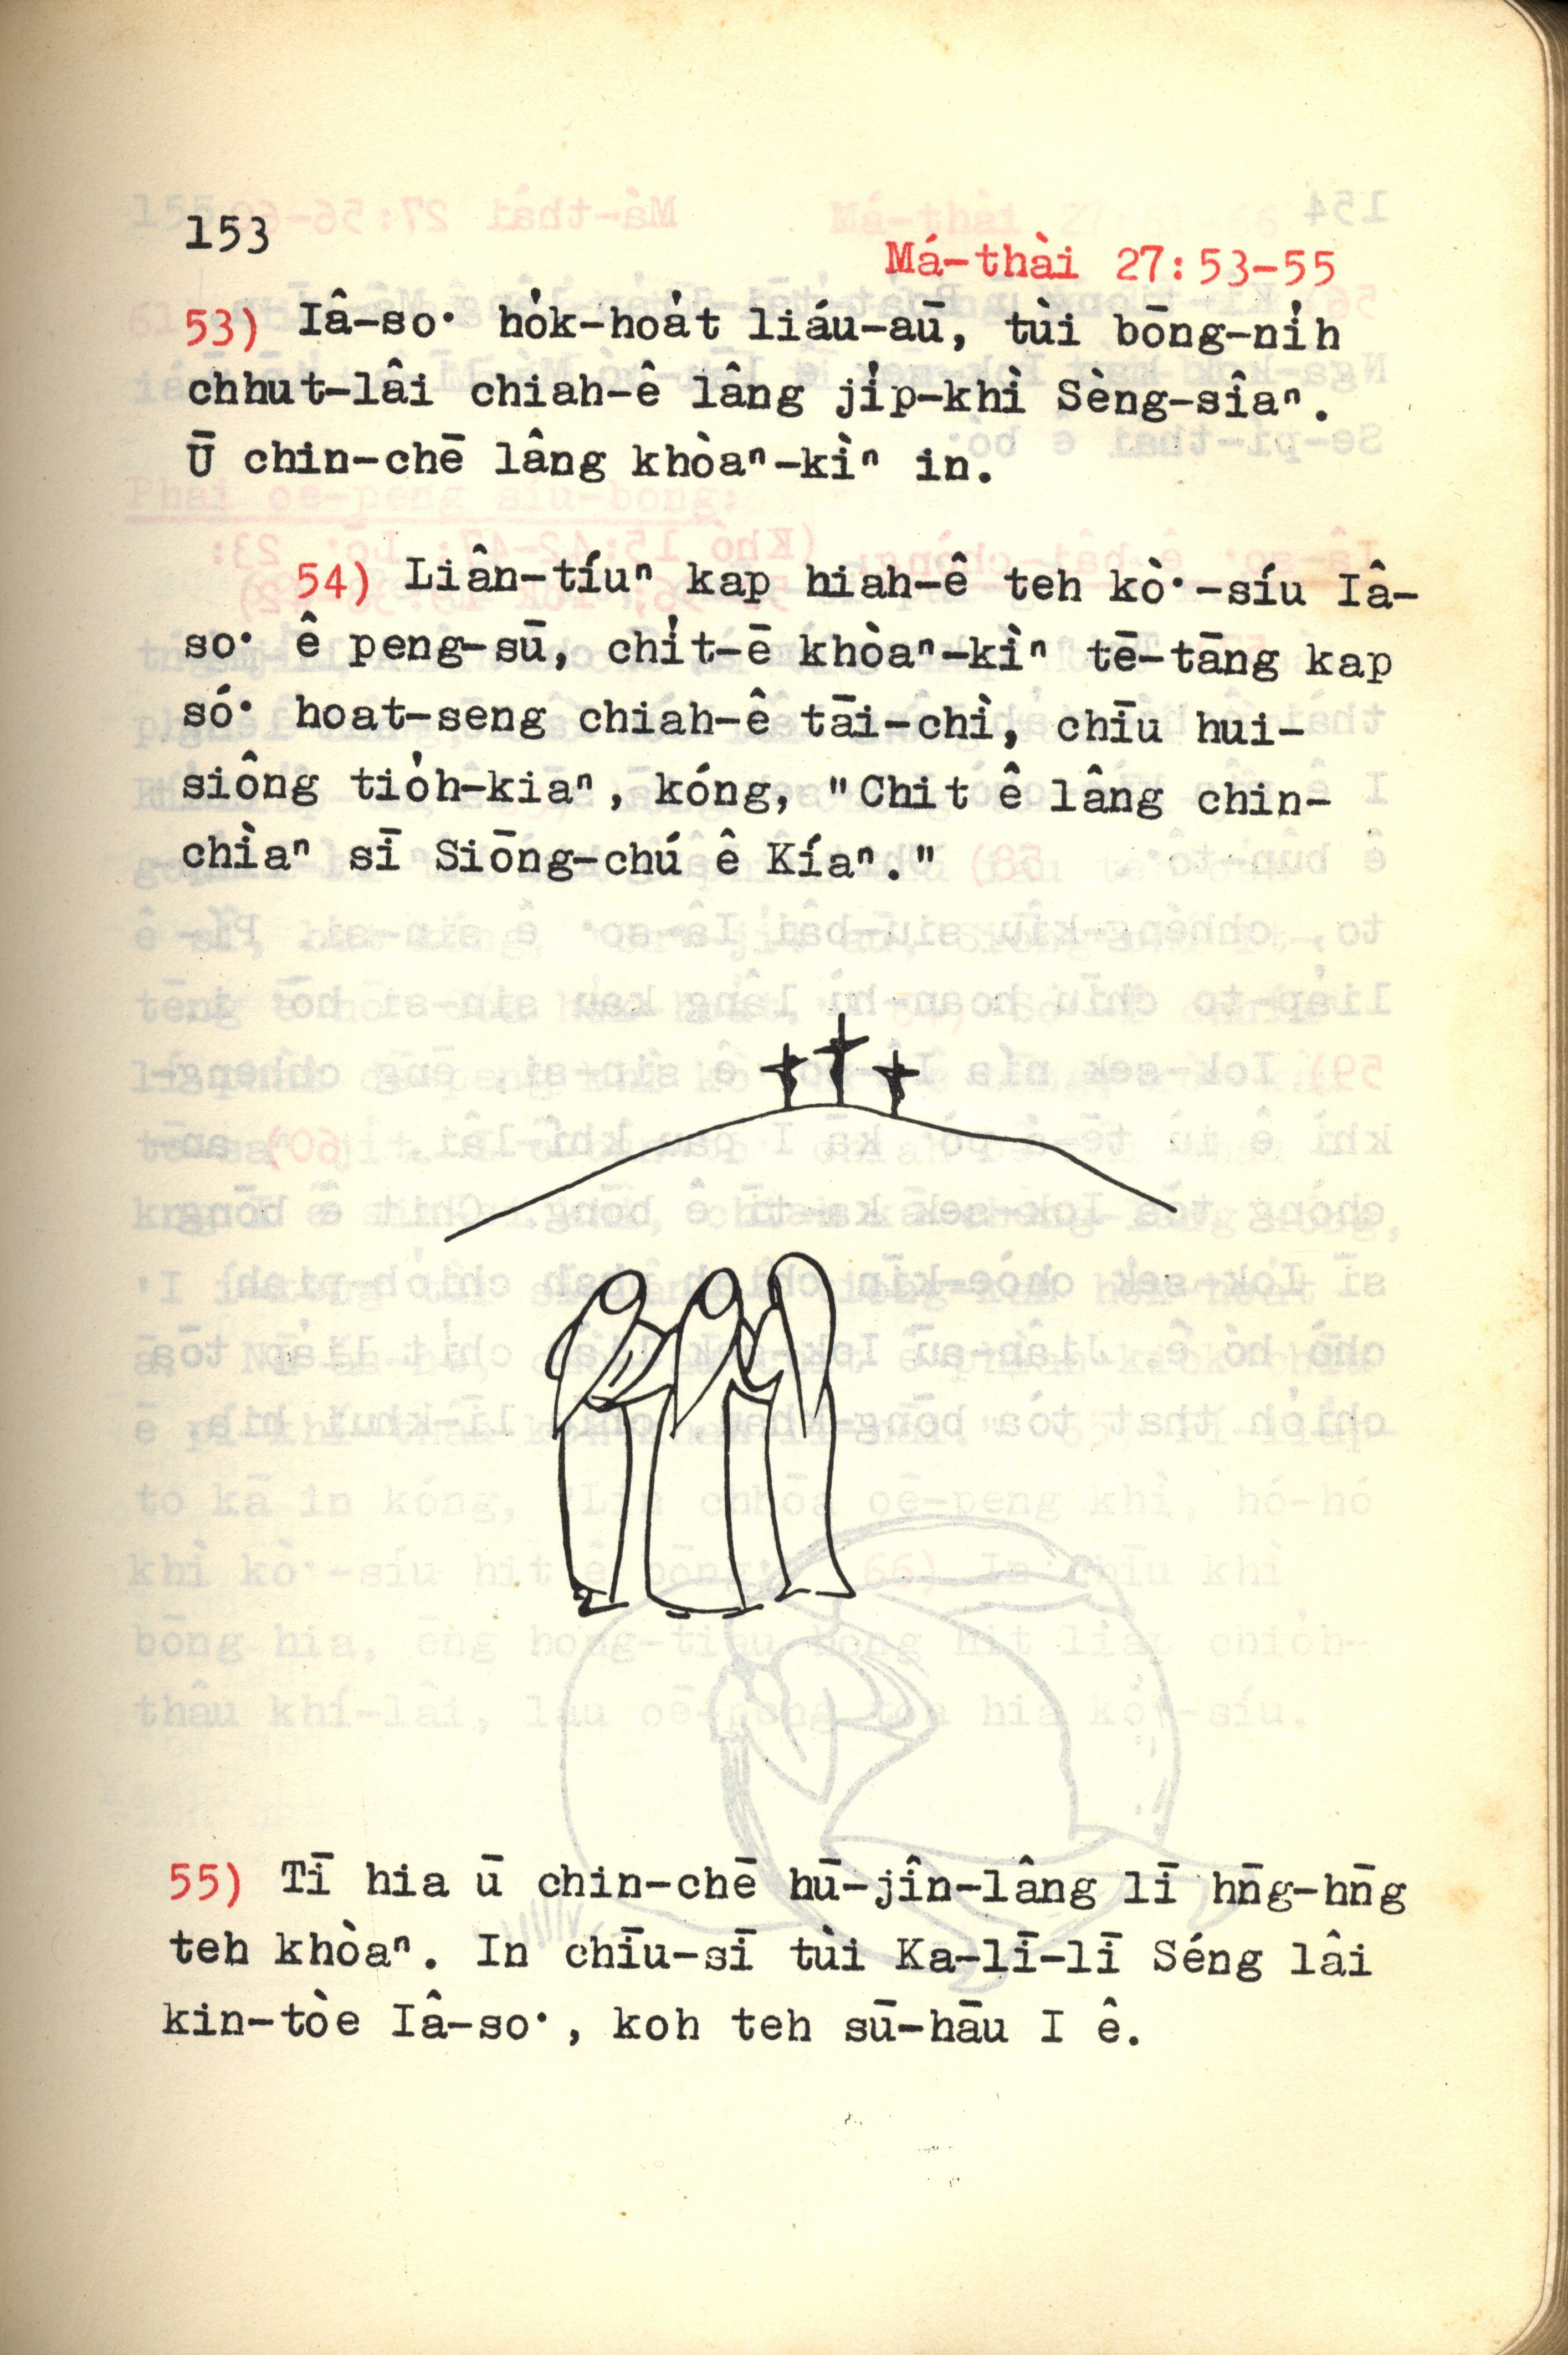 153
Má-thài 27:53-55
53) Iâ-so͘ ho̍k-hoa̍t liáu-aū, tùi bōng-ni̍h
chhut-lâi chiah-ê lâng ji̍p-khì Sèng-sîaⁿ.
Ū chin-chē lâng khòaⁿ-kìⁿ in.
54) Liân-tíuⁿ kap hiah-ê teh kò͘-síu Iâ-
so͘ ê peng-sū, chi̍t-ē khòaⁿ-kìⁿ tē-tāng kap
só͘ hoat-seng chiah-ê tāi-chì, chīu hui-
siông tio̍h-kiaⁿ, kóng, "Chit ê lâng chin-
chìaⁿ sī Siōng-chú ê Kíaⁿ."
55) Tī hia ū chin-chē hū-jîn-lâng lī hn̄g-hn̄g
teh khòaⁿ. In chīu-sī tùi Ka-lī-lī Séng lâi
kin-tòe Iâ-so͘, koh teh sū-hāu I ê.